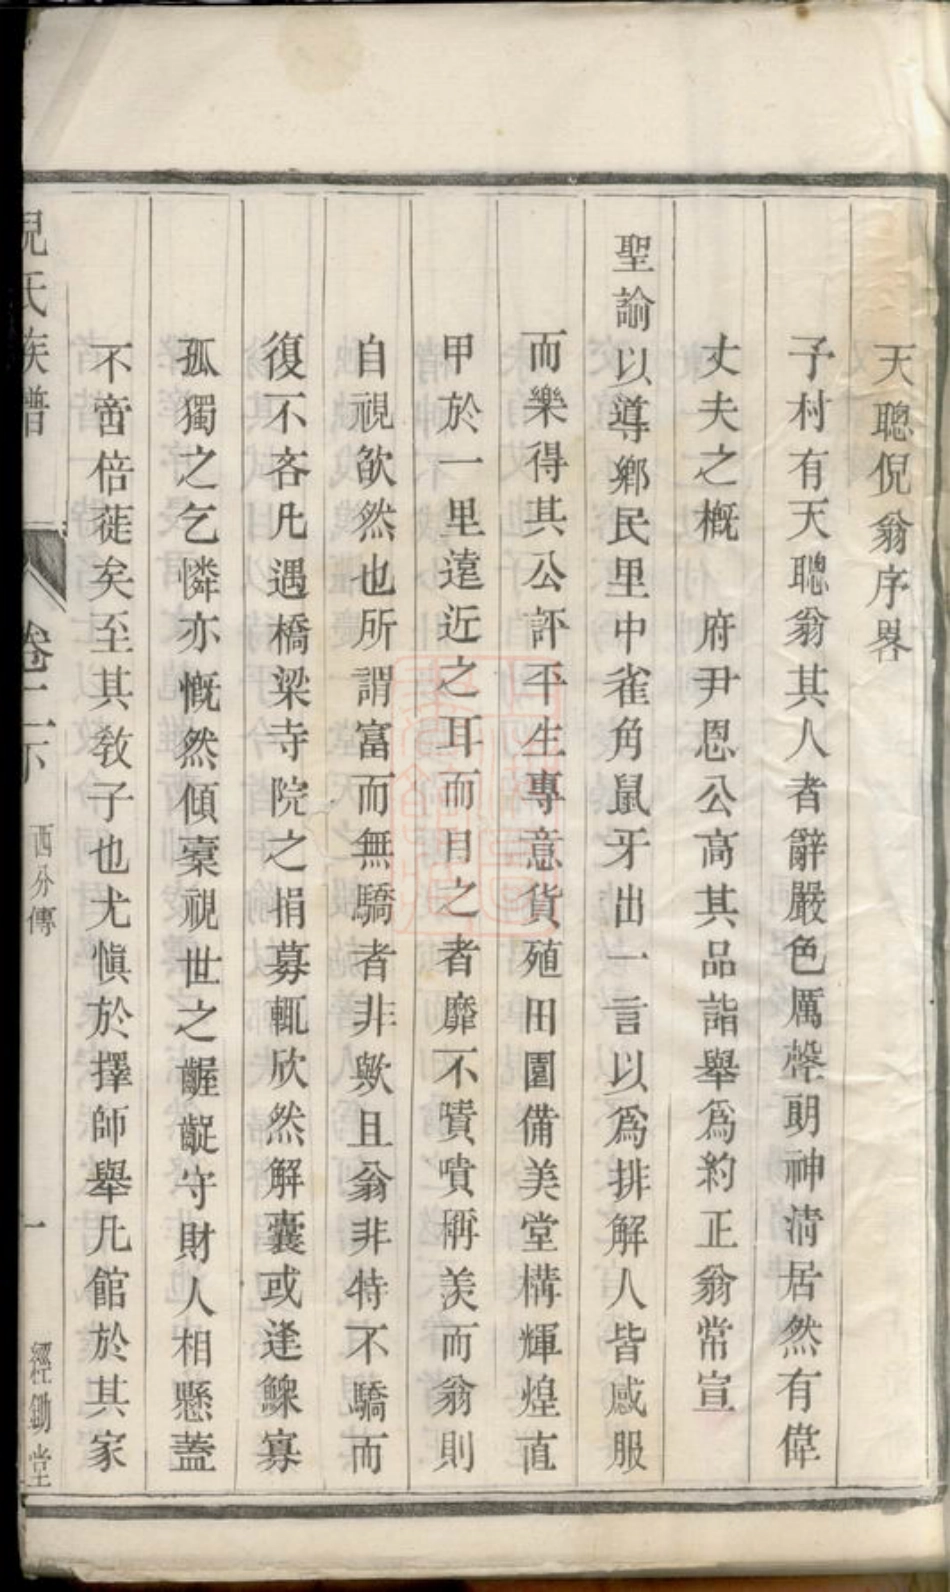 天聰倪翁序畧
子村有天聰翁其人者辭嚴色厲聲朗神清居然有偉
丈夫之概　府尹恩公高其品詣舉爲約正翁常宣
聖諭以導鄉民里中雀角鼠牙出一言以爲排解人皆感服
而樂得其公評平生專意貨殖田園備美堂構輝煌直
甲於一里遠近之耳而目之者靡不嘖嘖稱羨而翁則
自視欿然也所謂富而無驕者非歟且翁非特不驕而
復不吝凡遇橋梁寺院之捐募輒欣然解囊或逢鰥寡
孤獨之乞憐亦慨然傾橐視世之齷齪守財人相懸蓋
不啻倍蓰矣至其敎子也尤愼於擇師舉凡館於其家
倪氏族譜　卷二下　西分傳　一　經鋤堂